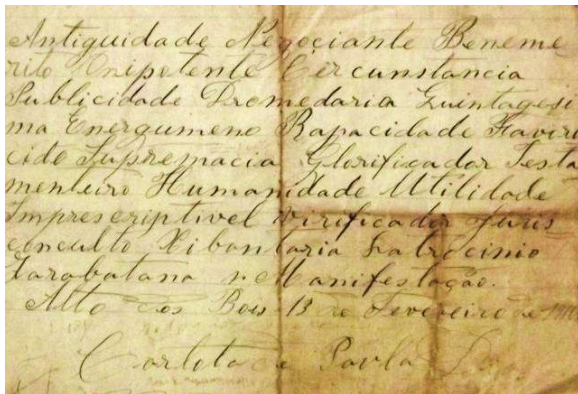 Antiguidade Negociante Beneme
rito Onipotente Circunstancia
Publicidade Dromedaria Quintagesi
ma Energumeno Rapacidade
Supremacia Glorificador Testa
menteiro Humanidade Utilidade
Imprescriptivel Virificador Juris
consulto Latrocinio
Zarabatana Manifestação.
Alto dos Bois 13 de Fevereiro de
Carlota de Paula